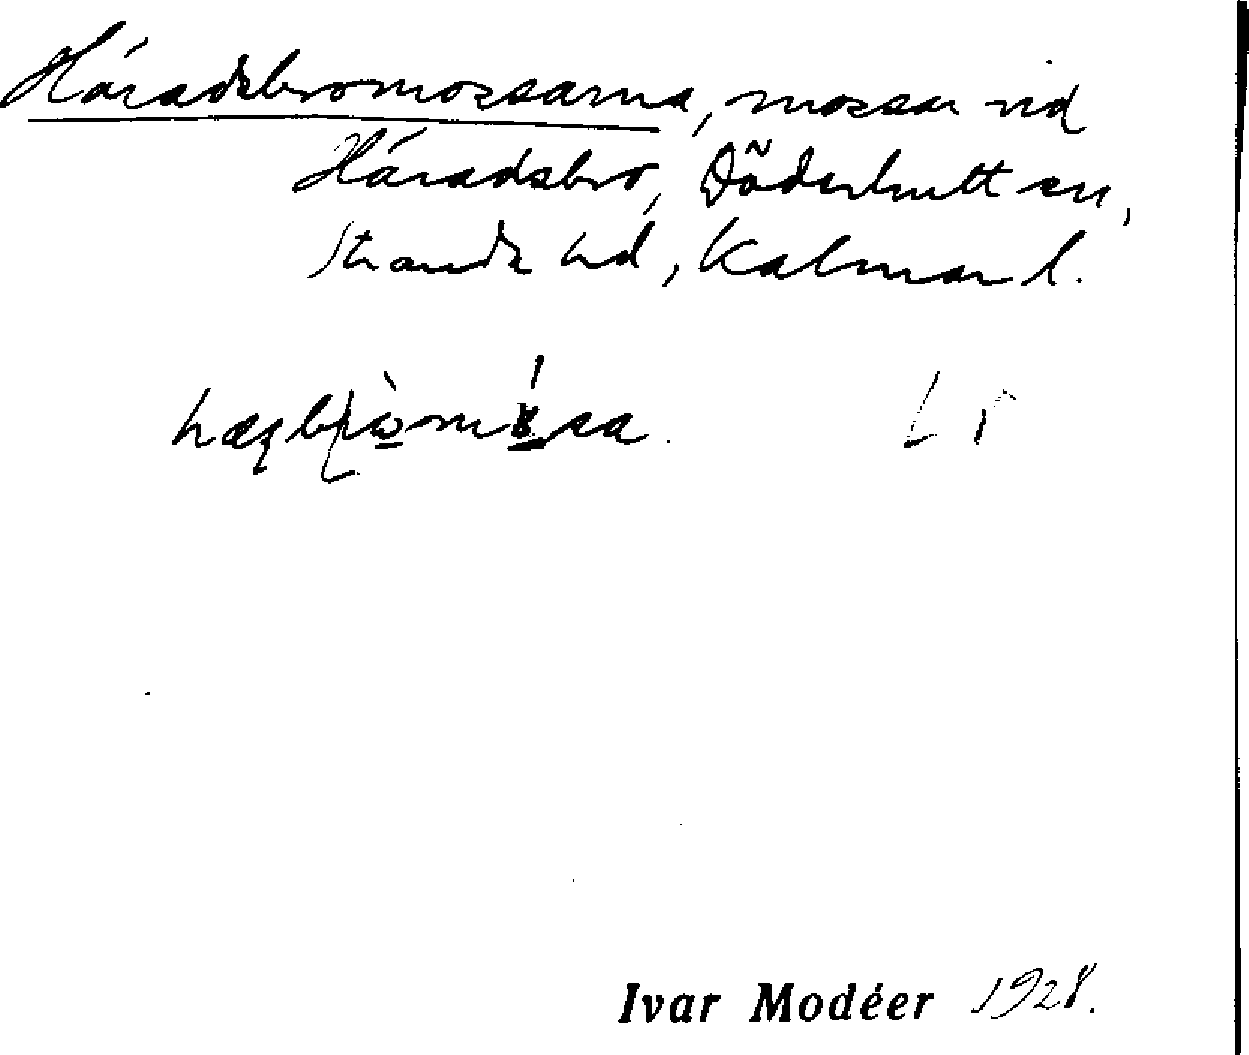 Häradsbromossarna, mossar vid
Häradsbro, Döderhult sn,
Stranda hd, Kalmar l.
Ivar Modéer 1928.